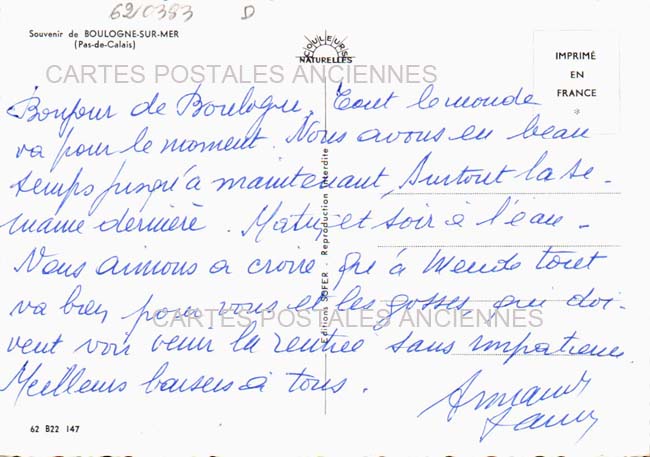 62/0383 D
Souvenir de BOULOGNE-SUR-MER
(Pas-de-Calais)
COULEURS
NATURELLES
IMPRIMÉ
EN
FRANCE
*
CARTES POSTALES ANCIENNES
Bonjour de Boulogne. Tout le monde
va pour le moment. Nous avons eu beau
temps jusqu'à maintenant, surtout la se-
maine dernière. Matin et soir à l'eau.
Nous aimons à croire que à Mende tout
va bien pour vous et les gosses, qui doi-
vent voir venir la rentrée sans impatience.
Meilleurs baisers à tous.
Armand
Editions SOFER - Reproduction interdite
CARTES POSTALES ANCIENNES
62 B22 147